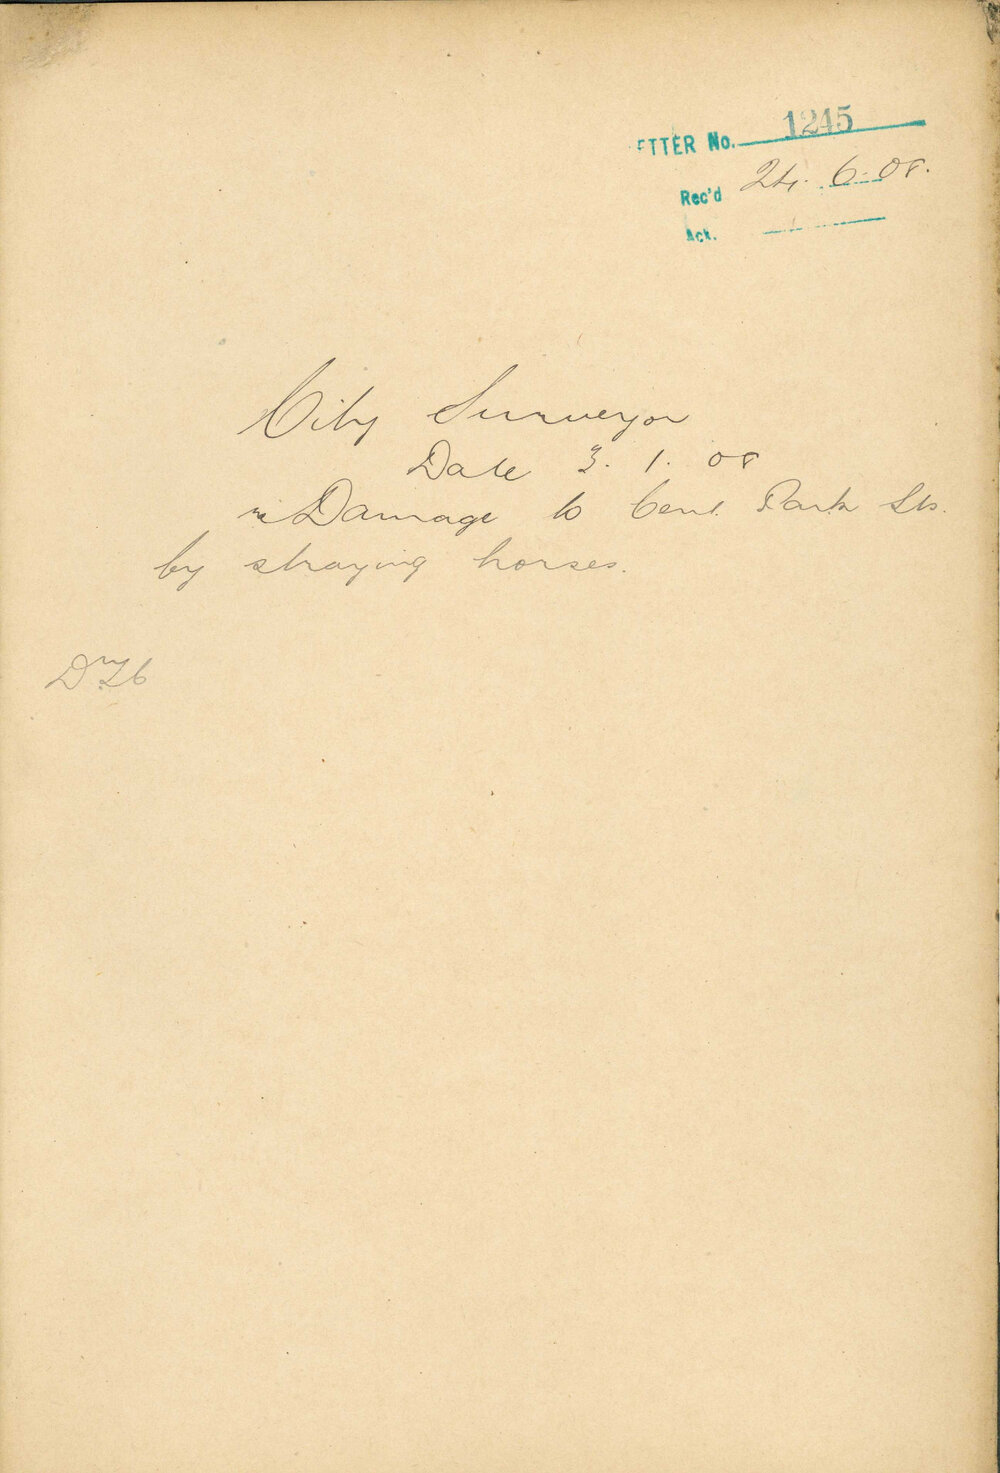 ETTER No. 1245
Rec'd 24. 6. 08.
Ack.
City Surveyor
Date 3. 1. 08
re Damage to Cent. Park Sts.
by straying horses.